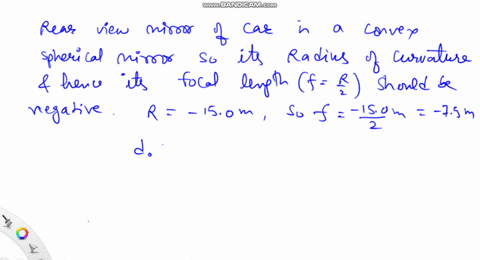 www.BANDICAM.com
Rear view mirror of car is a convex
spherical mirror so its Radius of curvature
& hence its focal length (f = R/2) should be
negative. R = -15.0 m, so f = -15.0 m/2 = -7.5 m
d.